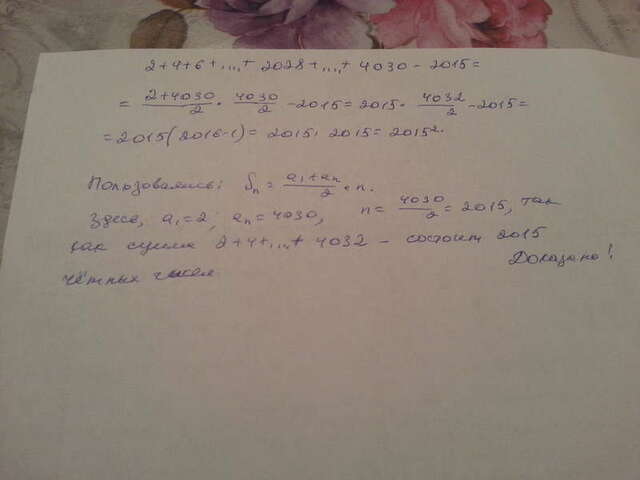 2+4+6+....+ 2028+....+ 4030 - 2015=
= (2+4030)/2 · 4030/2 - 2015 = 2015 · 4032/2 - 2015 =
= 2015(2016-1) = 2015 · 2015 = 2015².
Пользовались: Sn = (a1+an)/2 · n.
Здесь, a1=2; an=4030, n = 4030/2 = 2015, так
как сумма 2+4+....+ 4032 - состоит 2015
чётных чисел Доказано!